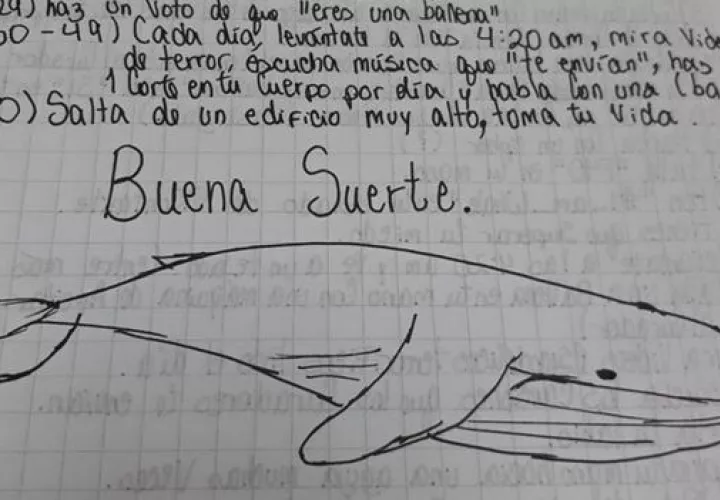 29) haz un Voto de que "eres una ballena"
50 - 49) Cada día, levantate a las 4:20 am, mira Vide
de terror, escucha música que "te envían", has
1 Corte en tu Cuerpo por día y habla Con una (ba
0) Salta de un edificio muy alto, toma tu Vida.
Buena Suerte.